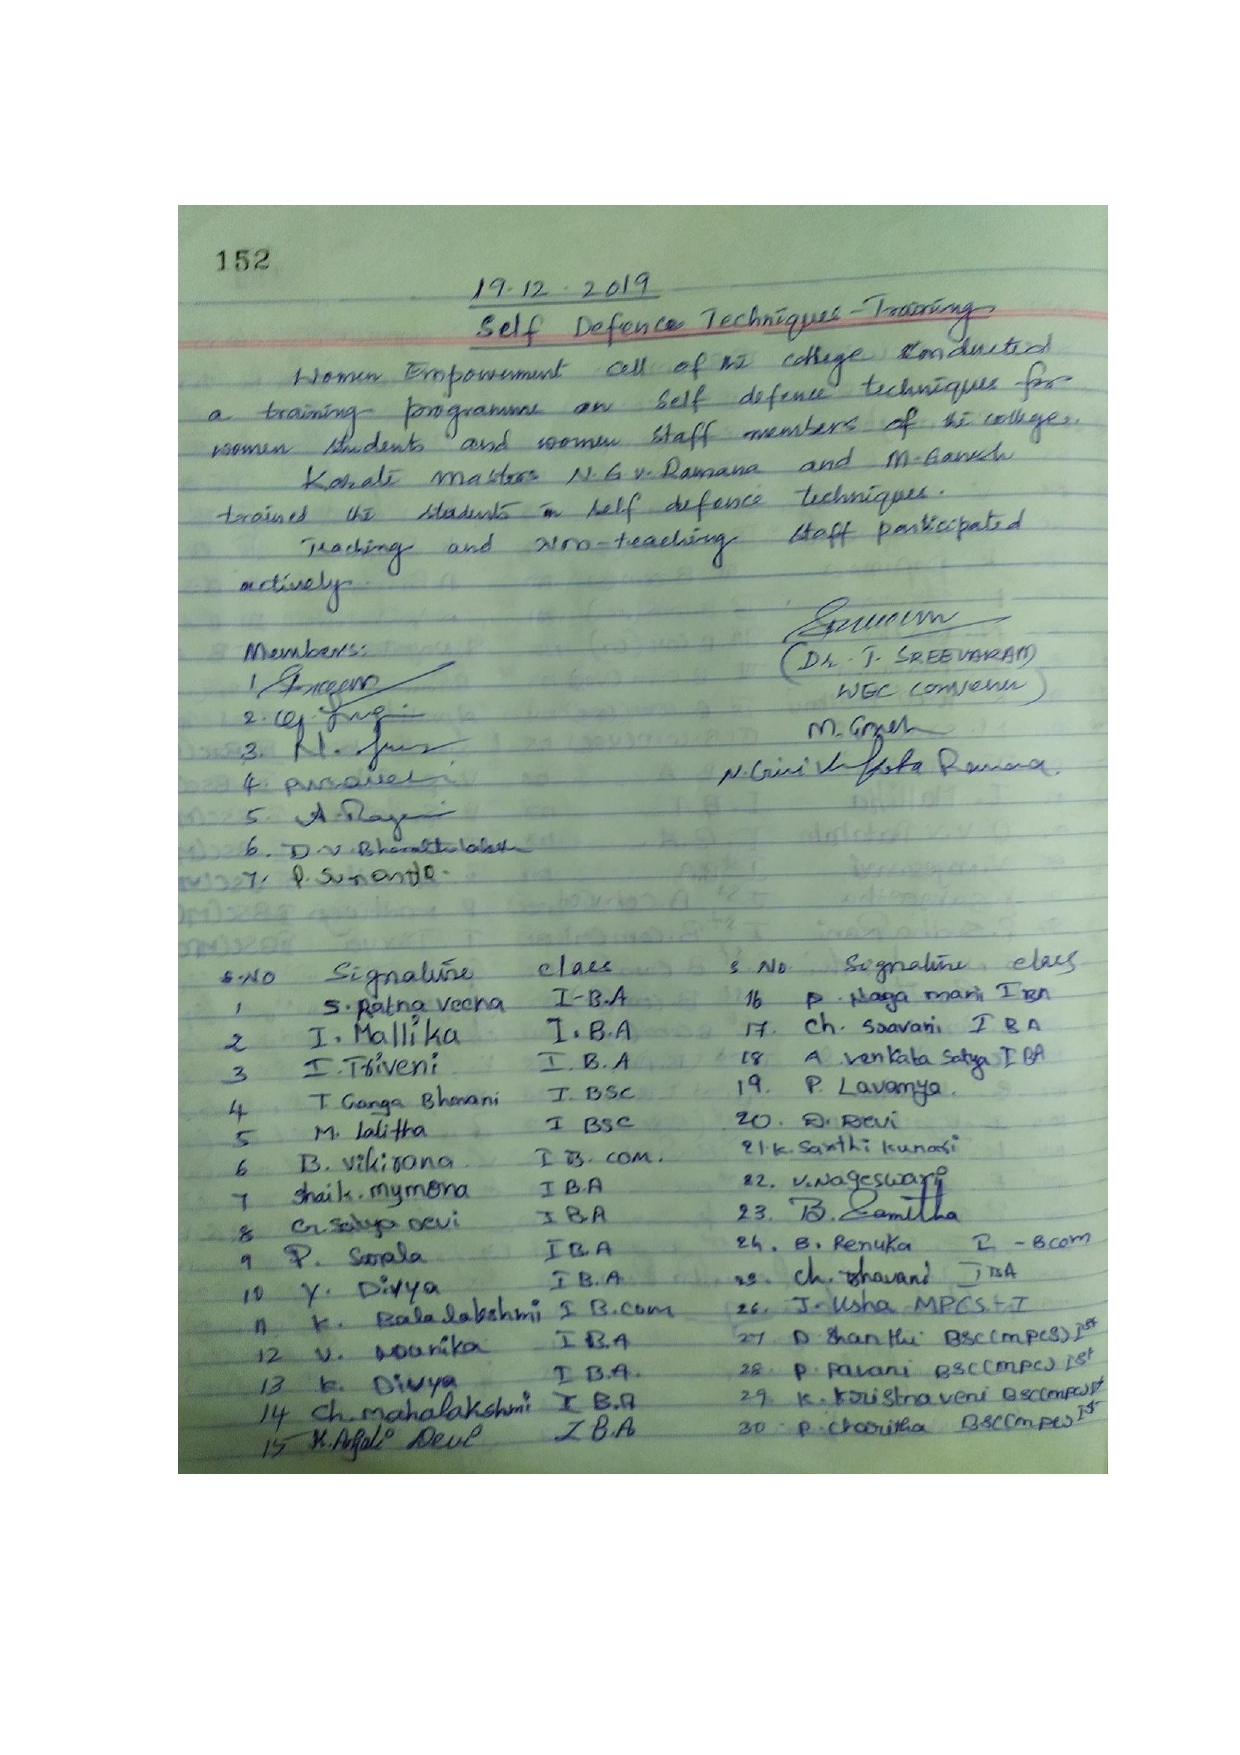 152
19.12.2019
Self Defence Techniques-Training
Women Empowerment cell of the college conducted
a training programme on self defence techniques for
women students and women staff members of the college.
Karate masters N.G.V. Ramana and M. Ganesh
trained the students in self defence techniques.
Teaching and Non-teaching staff participated
actively.
(Dr. T. SREEVARAM)
WEC Convenor)
Members:
1
2.
3. N.
4.
5. A.
6. D.V.
7. P. Sunanda.
M. Ganesh
Ramana.
S.NO Signature class
1 S. Ratna Veena I-B.A
2 I. Mallika I.B.A
3 I. Triveni I.B.A
4 T Ganga Bhavani I. BSC
5 M. Lalitha I BSC
6 B. Vikirana I B.com.
7 Shaik. mymona I B.A
8 Ch Satya Devi I B.A
9 P. Sarala I B.A
10 Y. Divya I B.A
11 K. Balalakshmi I B.com
12 V. Mounika I B.A
13 K. Divya I B.A.
14 Ch. mahalakshmi I B.A
15 K. Anjali Devi I B.A
S No. Signature class
16 P. Naga mani I BA
17. Ch. Sravani I B A
18 A Venkata Satya I BA
19. P. Lavanya.
20. D. Devi
21. K. Santhi Kumari
22. V. Nageswari
23. B.
24. B. Renuka I - Bcom
25. Ch. Bhavani I BA
26. J. Usha MPCS-I
27 D Shanthi BSC(MPCS) Ist
28 P. Pavani BSC(MPCS) Ist
29. K. Kristnaveni BSC(MPCS) Ist
30 P. Charitha BSC(MPCS) Ist